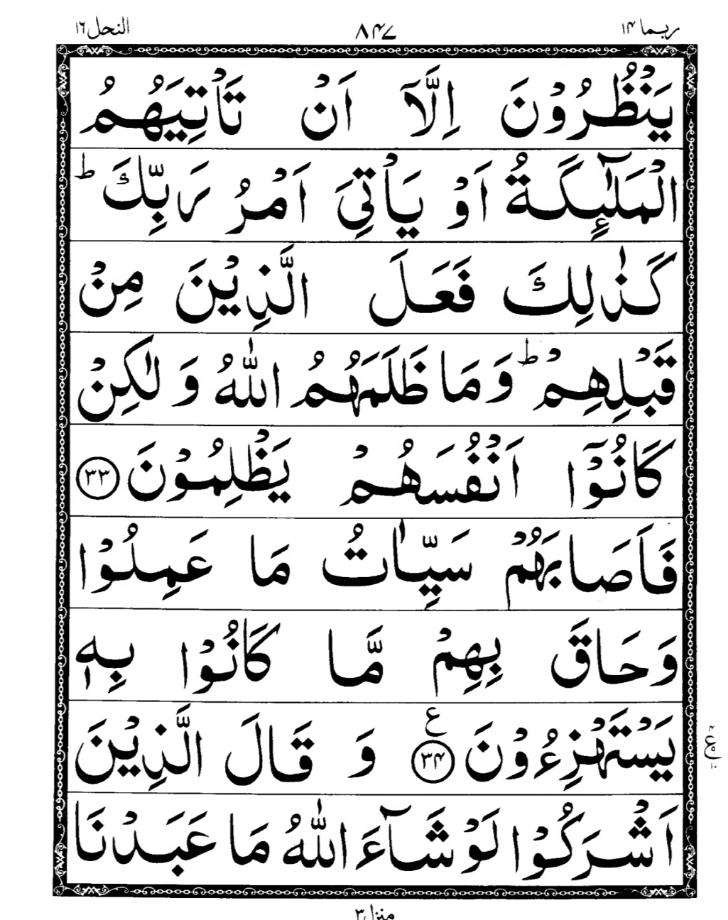 ربما ۱۴ ۸۴۷ النحل ۱۶
يَنْظُرُوْنَ اِلَّاۤ اَنْ تَاْتِيَهُمُ
الْمَلٰٓئِكَةُ اَوْ يَاْتِيَ اَمْرُ رَبِّكَ ؕ
كَذٰلِكَ فَعَلَ الَّذِيْنَ مِنْ
قَبْلِهِمْ ؕ وَمَا ظَلَمَهُمُ اللّٰهُ وَلٰكِنْ
كَانُوْۤا اَنْفُسَهُمْ يَظْلِمُوْنَ ۳۳
فَاَصَابَهُمْ سَيِّاٰتُ مَا عَمِلُوْا
وَحَاقَ بِهِمْ مَّا كَانُوْا بِهٖ
يَسْتَهْزِءُوْنَ ۳۴ ع وَقَالَ الَّذِيْنَ
اَشْرَكُوْا لَوْ شَآءَ اللّٰهُ مَا عَبَدْنَا
منزل ۳